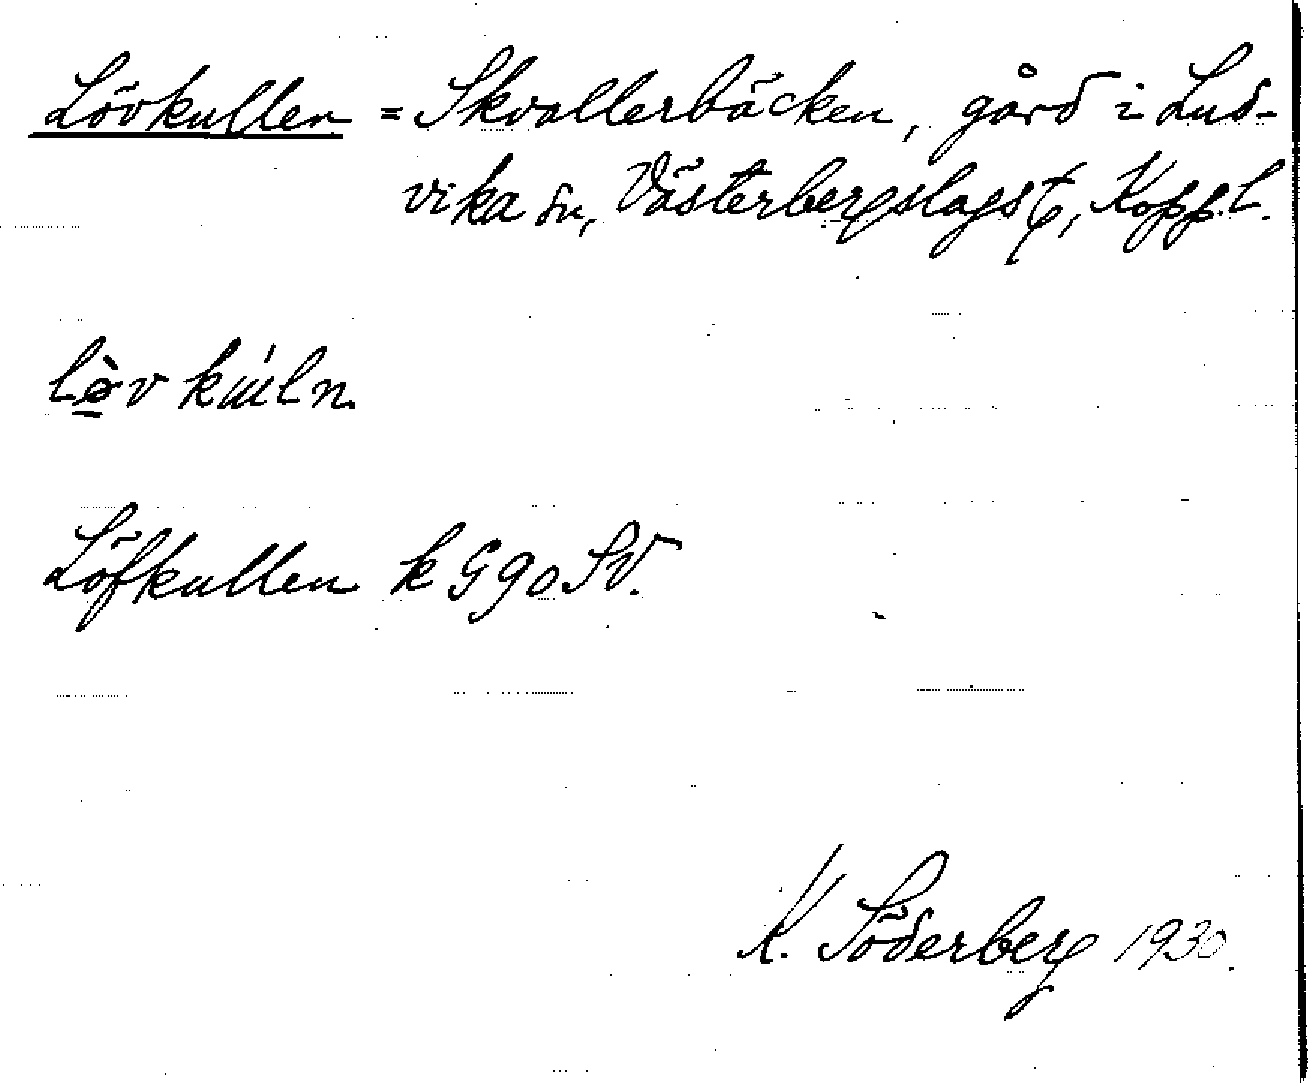 Lövkullen = Skvallerbäcken, gård i Lud-
vika sn, Västerbergslags t, Kopp.l.
Löfkullen k G 90 SV.
K. Söderberg 1930.